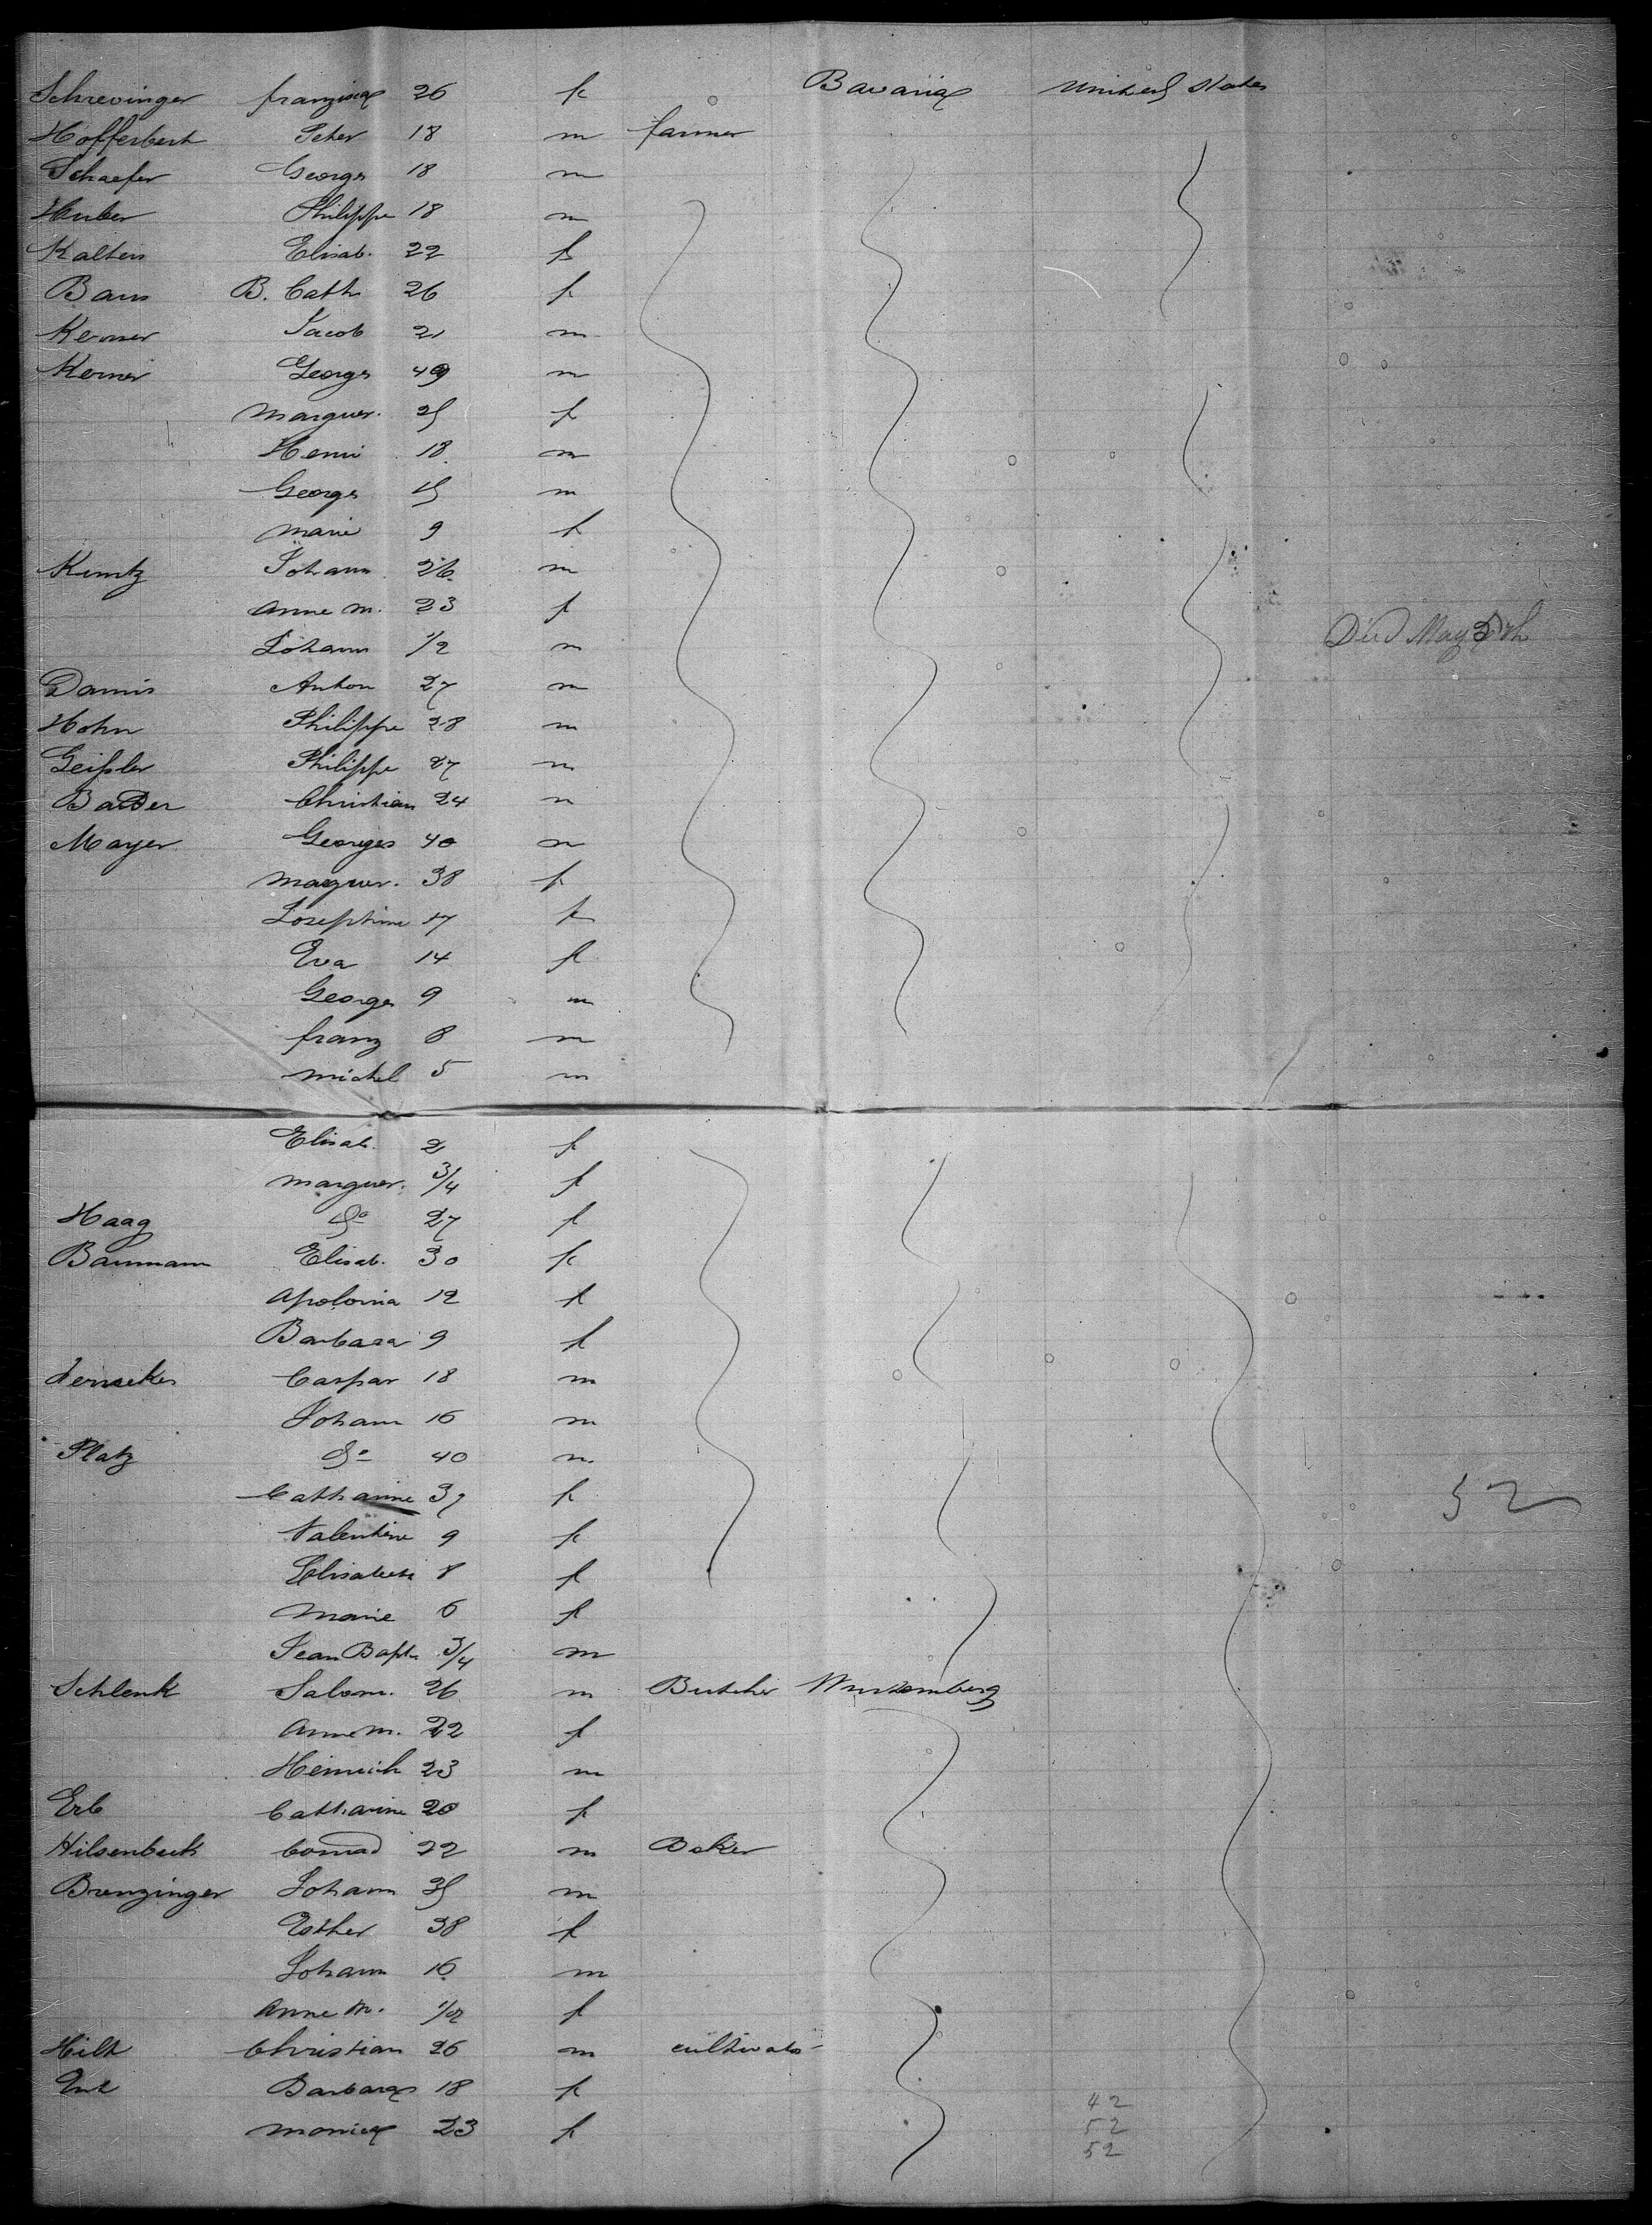 Schrevinger franzisca 26 f Bavaria United States
Hofferbert Peter 18 m farmer
Schaefer Georges 18 m
Huber Philippe 18 m
Kalten Elisab. 22 f
Baus B. Cath 26 f
Kerner Jacob 21 m
Kerner Georges 49 m
marguer. 25 f
Henri 18 m
Georges 15 m
marie 9 f
Kuntz Johann 26 m
anne m. 23 f
Johann 1/2 m Died May 5th
Damis Anton 27 m
Hohn Philippe 28 m
Geißler Philippe 27 m
Bader Christian 24 m
Mayer Georges 40 m
marguer. 38 f
Josephine 17 f
Eva 14 f
Georges 9 m
franz 8 m
michel 5 m
Elisab. 2 f
marguer. 3/4 f
Haag do 27 f
Baumann Elisab. 30 f
Apolonia 12 f
Barbara 9 f
Caspar 18 m
Johann 16 m
Platz do 40 m
Catharine 37 f
52
Valentine 9 f
Elisabeth 8 f
Marie 6 f
Jean Bapte 3/4 m
Schlenk Salom. 26 m Butcher Wurtemberg
Anne m. 22 f
Heinrich 23 m
Erb Catharine 20 f
Hilsenbeck Conrad 22 m Baker
Brenzinger Johann 35 m
Esther 38 f
Johann 16 m
Anne M. 1/2 f
Hilt Christian 26 m cultivator
Barbara 18 f
42
monica 23 f 52
52